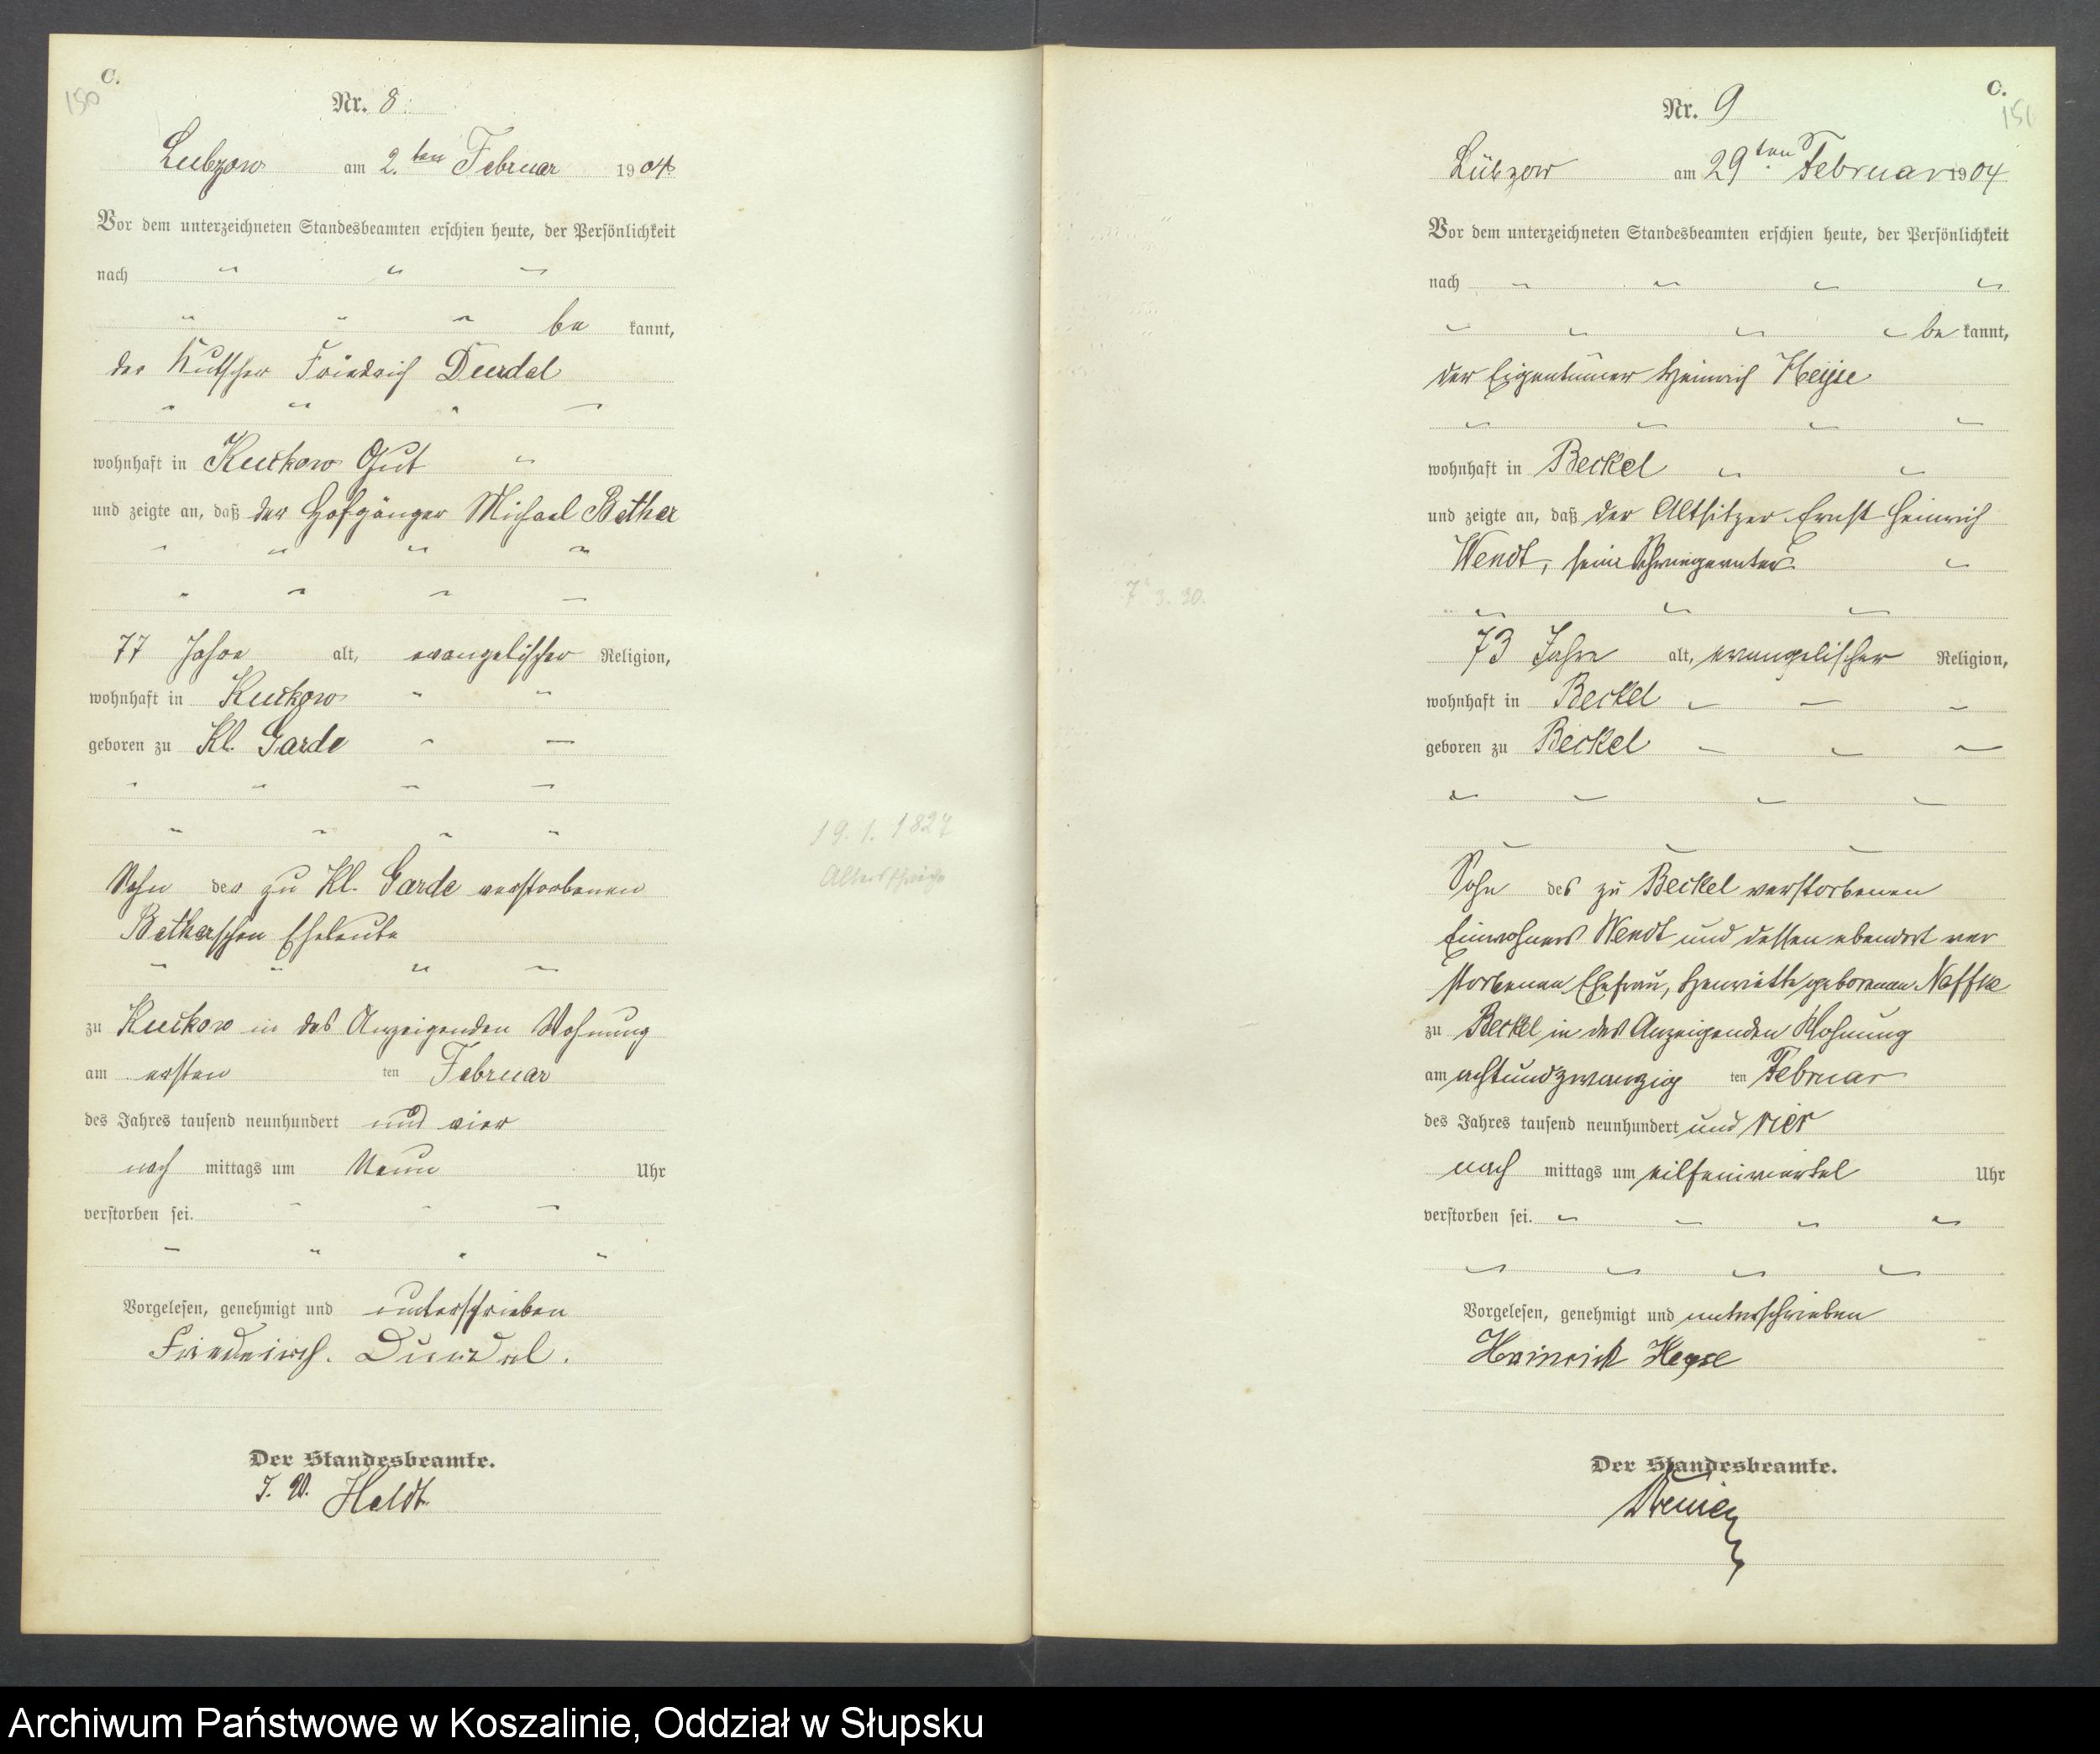 C.
150
Nr. 8.
Lübzow am 2.ten Februar 1904
Vor dem unterzeichneten Standesbeamten erschien heute, der Persönlichkeit
nach
be kannt,
der Kutscher Friedrich Deerdel
wohnhaft in Kuckow Gut
und zeigte an, daß der Hofgänger Michael Bether
77 Jahre alt, evangelischer Religion,
wohnhaft in Kuckow
geboren zu Kl. Garde
19.1.1827
Altersschwäche
Sohn der zu Kl. Garde verstorbenen
Betherschen Eheleute
zu Kuckow in des Anzeigenden Wohnung
am ersten ten Februar
des Jahres tausend neunhundert und vier
nach mittags um Neun Uhr
verstorben sei.
Vorgelesen, genehmigt und unterschrieben
Friedrich.
Der Standesbeamte.
J. V. Heldt
C.
151
Nr. 9
Lübzow am 29ten Februar 1904
Vor dem unterzeichneten Standesbeamten erschien heute, der Persönlichkeit
nach
be kannt,
der Eigentümer Heinrich Heyse
wohnhaft in Beckel
und zeigte an, daß der Altsitzer Ernst Heinrich
Wendt, sein Schwiegervater
7. 3. 30.
73 Jahre alt, evangelischer Religion,
wohnhaft in Beckel
geboren zu Beckel
Sohn des zu Beckel verstorbenen
Einwohners Wendt und dessen ebendort ver
storbenen Ehefrau, Henriette geborenen Naffke
zu Beckel in des Anzeigenden Wohnung
am achtundzwanzig ten Februar
des Jahres tausend neunhundert und vier
nach mittags um eilfeinviertel Uhr
verstorben sei.
Vorgelesen, genehmigt und unterschrieben
Heinrich Heyse
Der Standesbeamte.
Archiwum Państwowe w Koszalinie, Oddział w Słupsku